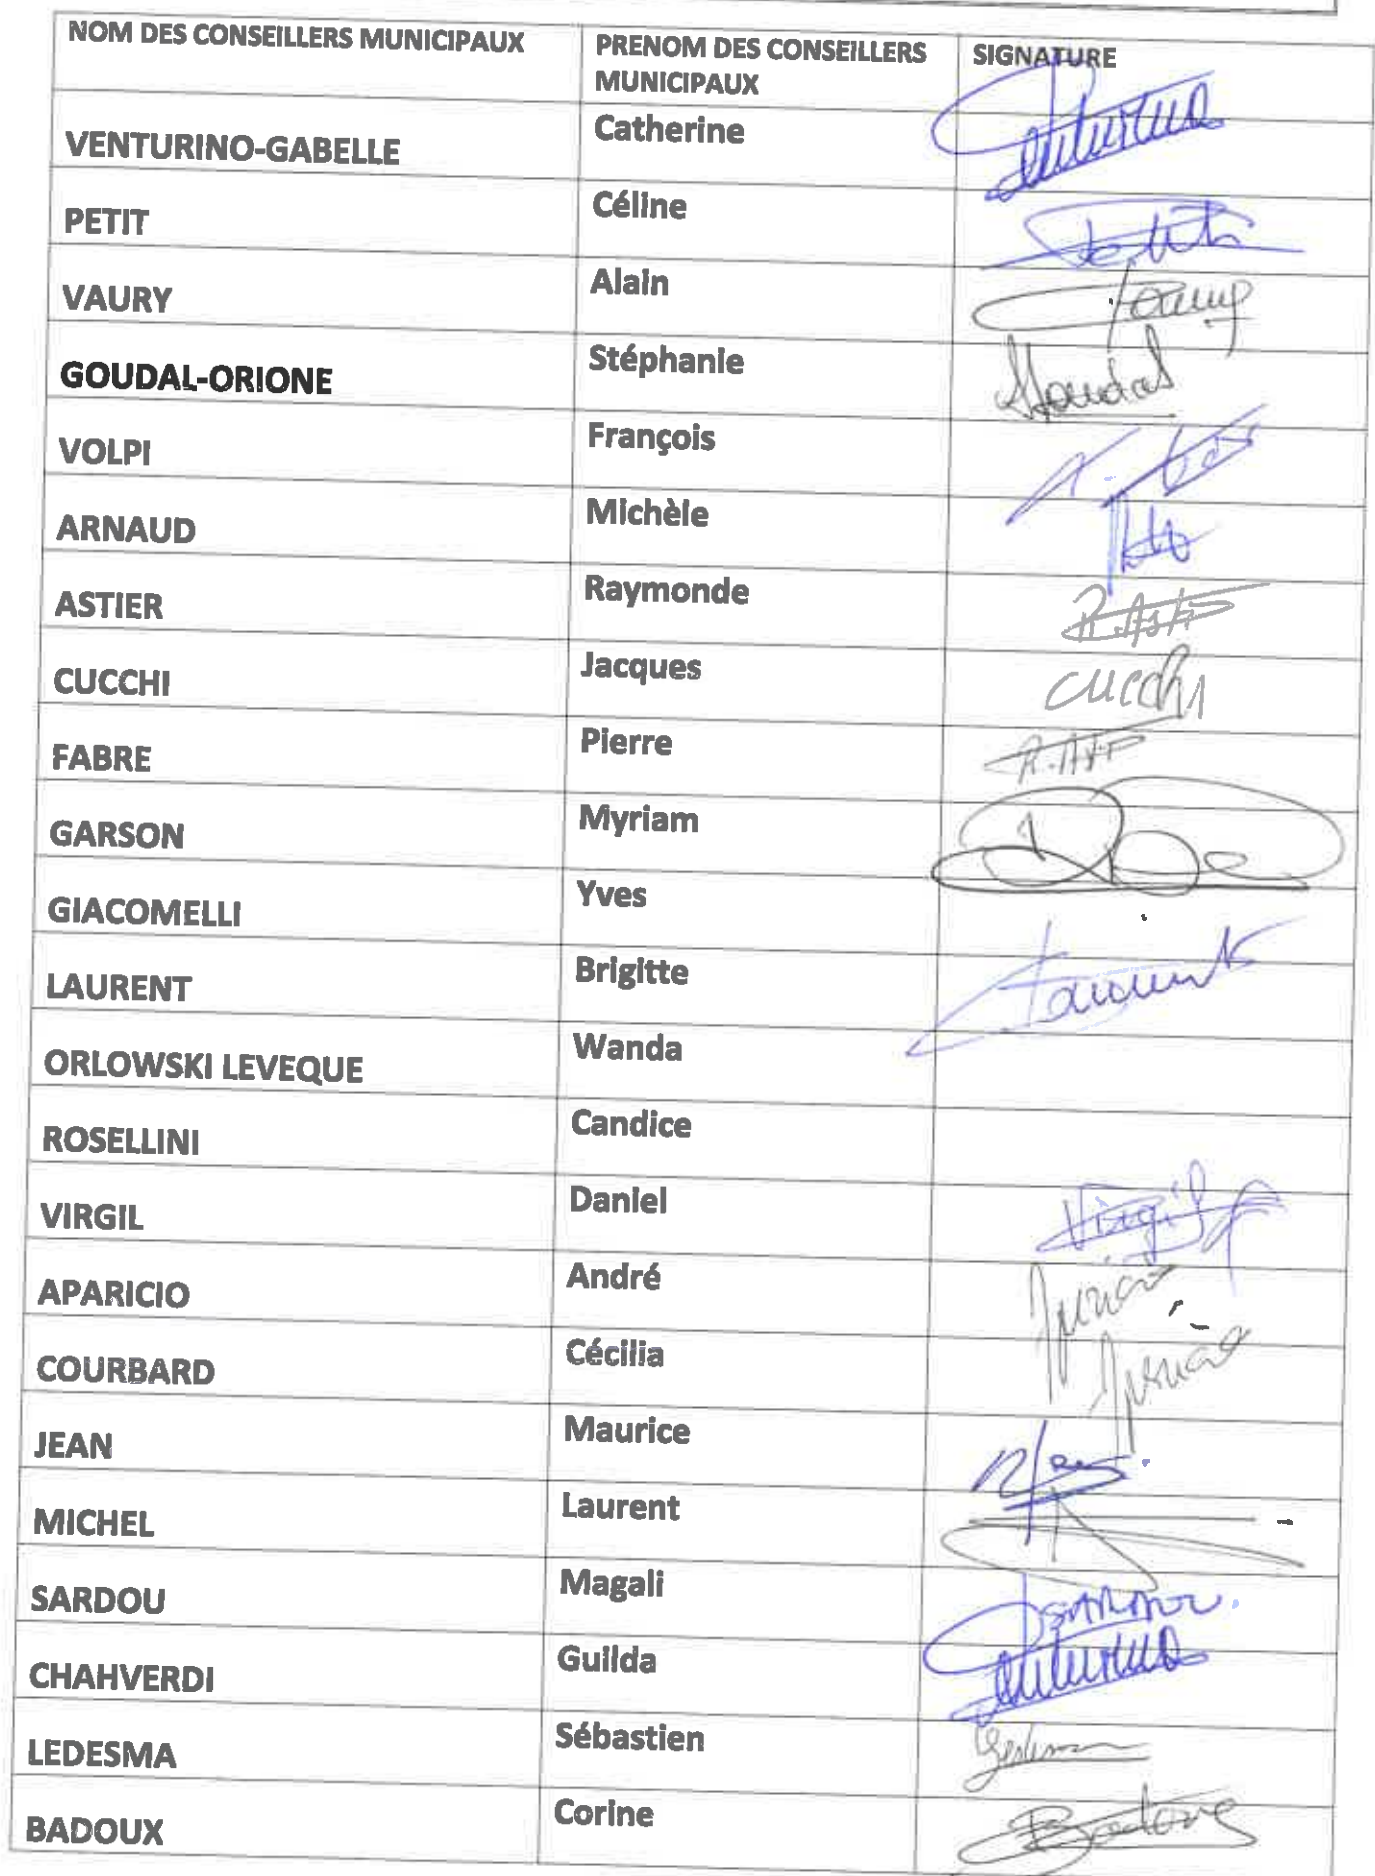 NOM DES CONSEILLERS MUNICIPAUX PRENOM DES CONSEILLERS MUNICIPAUX SIGNATURE
VENTURINO-GABELLE Catherine
PETIT Céline Petit
VAURY Alain Vaury
GOUDAL-ORIONE Stéphanie Goudal
VOLPI François
ARNAUD Michèle
ASTIER Raymonde R.Astier
CUCCHI Jacques CUCCHI
FABRE Pierre
GARSON Myriam
GIACOMELLI Yves
LAURENT Brigitte Laurent
ORLOWSKI LEVEQUE Wanda
ROSELLINI Candice
VIRGIL Daniel Virgil
APARICIO André
COURBARD Cécilia
JEAN Maurice
MICHEL Laurent
SARDOU Magali SARDOU
CHAHVERDI Guilda
LEDESMA Sébastien
BADOUX Corine Badoux